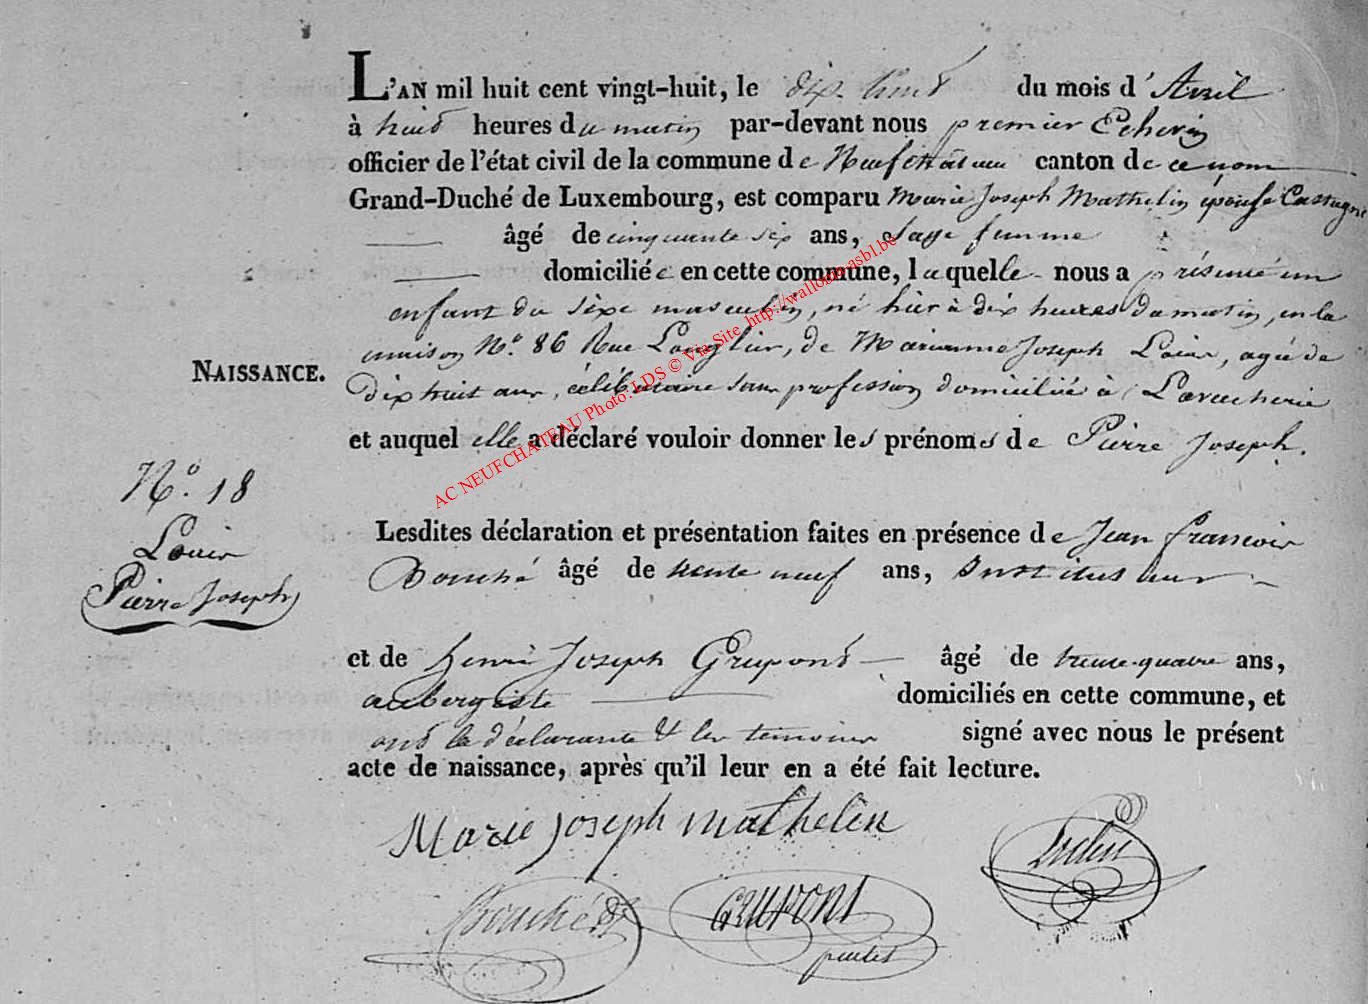 L'AN mil huit cent vingt-huit, le dix huit du mois d'Avril
à huit heures du matin par-devant nous premier Echevin
officier de l'état civil de la commune de Neufchateau canton de ce nom
Grand-Duché de Luxembourg, est comparu Marie Joseph Mathelin épouse Castagne
âgé de cinquante six ans, sage femme
domiciliée en cette commune, laquelle nous a présenté un
enfant du sexe masculin, né hier à dix heures du matin, en la
maison N.° 86 Rue Longlier, de Marianne Joseph Louis, agée de
NAISSANCE.
dix huit ans, célibataire sans profession domiciliée à Lavacherie
et auquel elle a déclaré vouloir donner les prénoms de Pierre Joseph.
AC NEUFCHATEAU Photo: LDS © Via Site http://wallonia-asbl.be
N.° 18
Louis
Pierre Joseph
Lesdites déclaration et présentation faites en présence de Jean francois
Bouché âgé de trente neuf ans, Instituteur
et de henri Joseph Grupont âgé de trente-quatre ans,
aubergiste domiciliés en cette commune, et
ont la déclarante & les temoins signé avec nous le présent
acte de naissance, après qu'il leur en a été fait lecture.
Marie joseph mathelin
Bouché GRUPONT